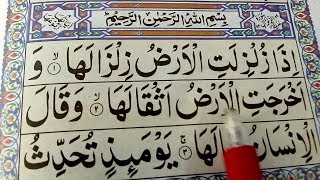 بِسْمِ اللهِ الرَّحْمٰنِ الرَّحِيْمِ
اِذَا زُلْزِلَتِ الْاَرْضُ زِلْزَالَهَا ۙ﴿۱﴾ وَ
اَخْرَجَتِ الْاَرْضُ اَثْقَالَهَا ۙ﴿۲﴾ وَقَالَ
الْاِنْسَانُ لَهَا ۚ﴿۳﴾ يَوْمَئِذٍ تُحَدِّثُ